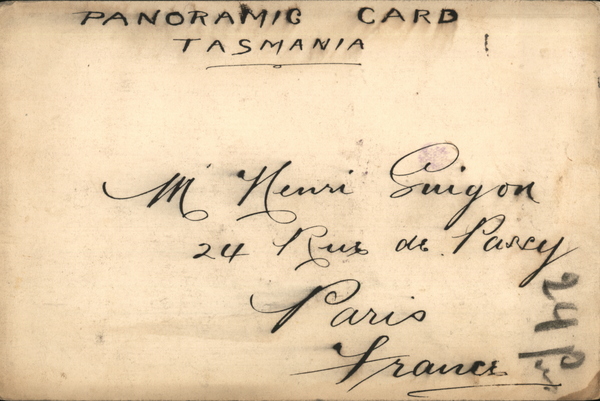 PANORAMIC CARD
TASMANIA
Mr Henri Guigon
24 Rue de Passy
Paris
France
24